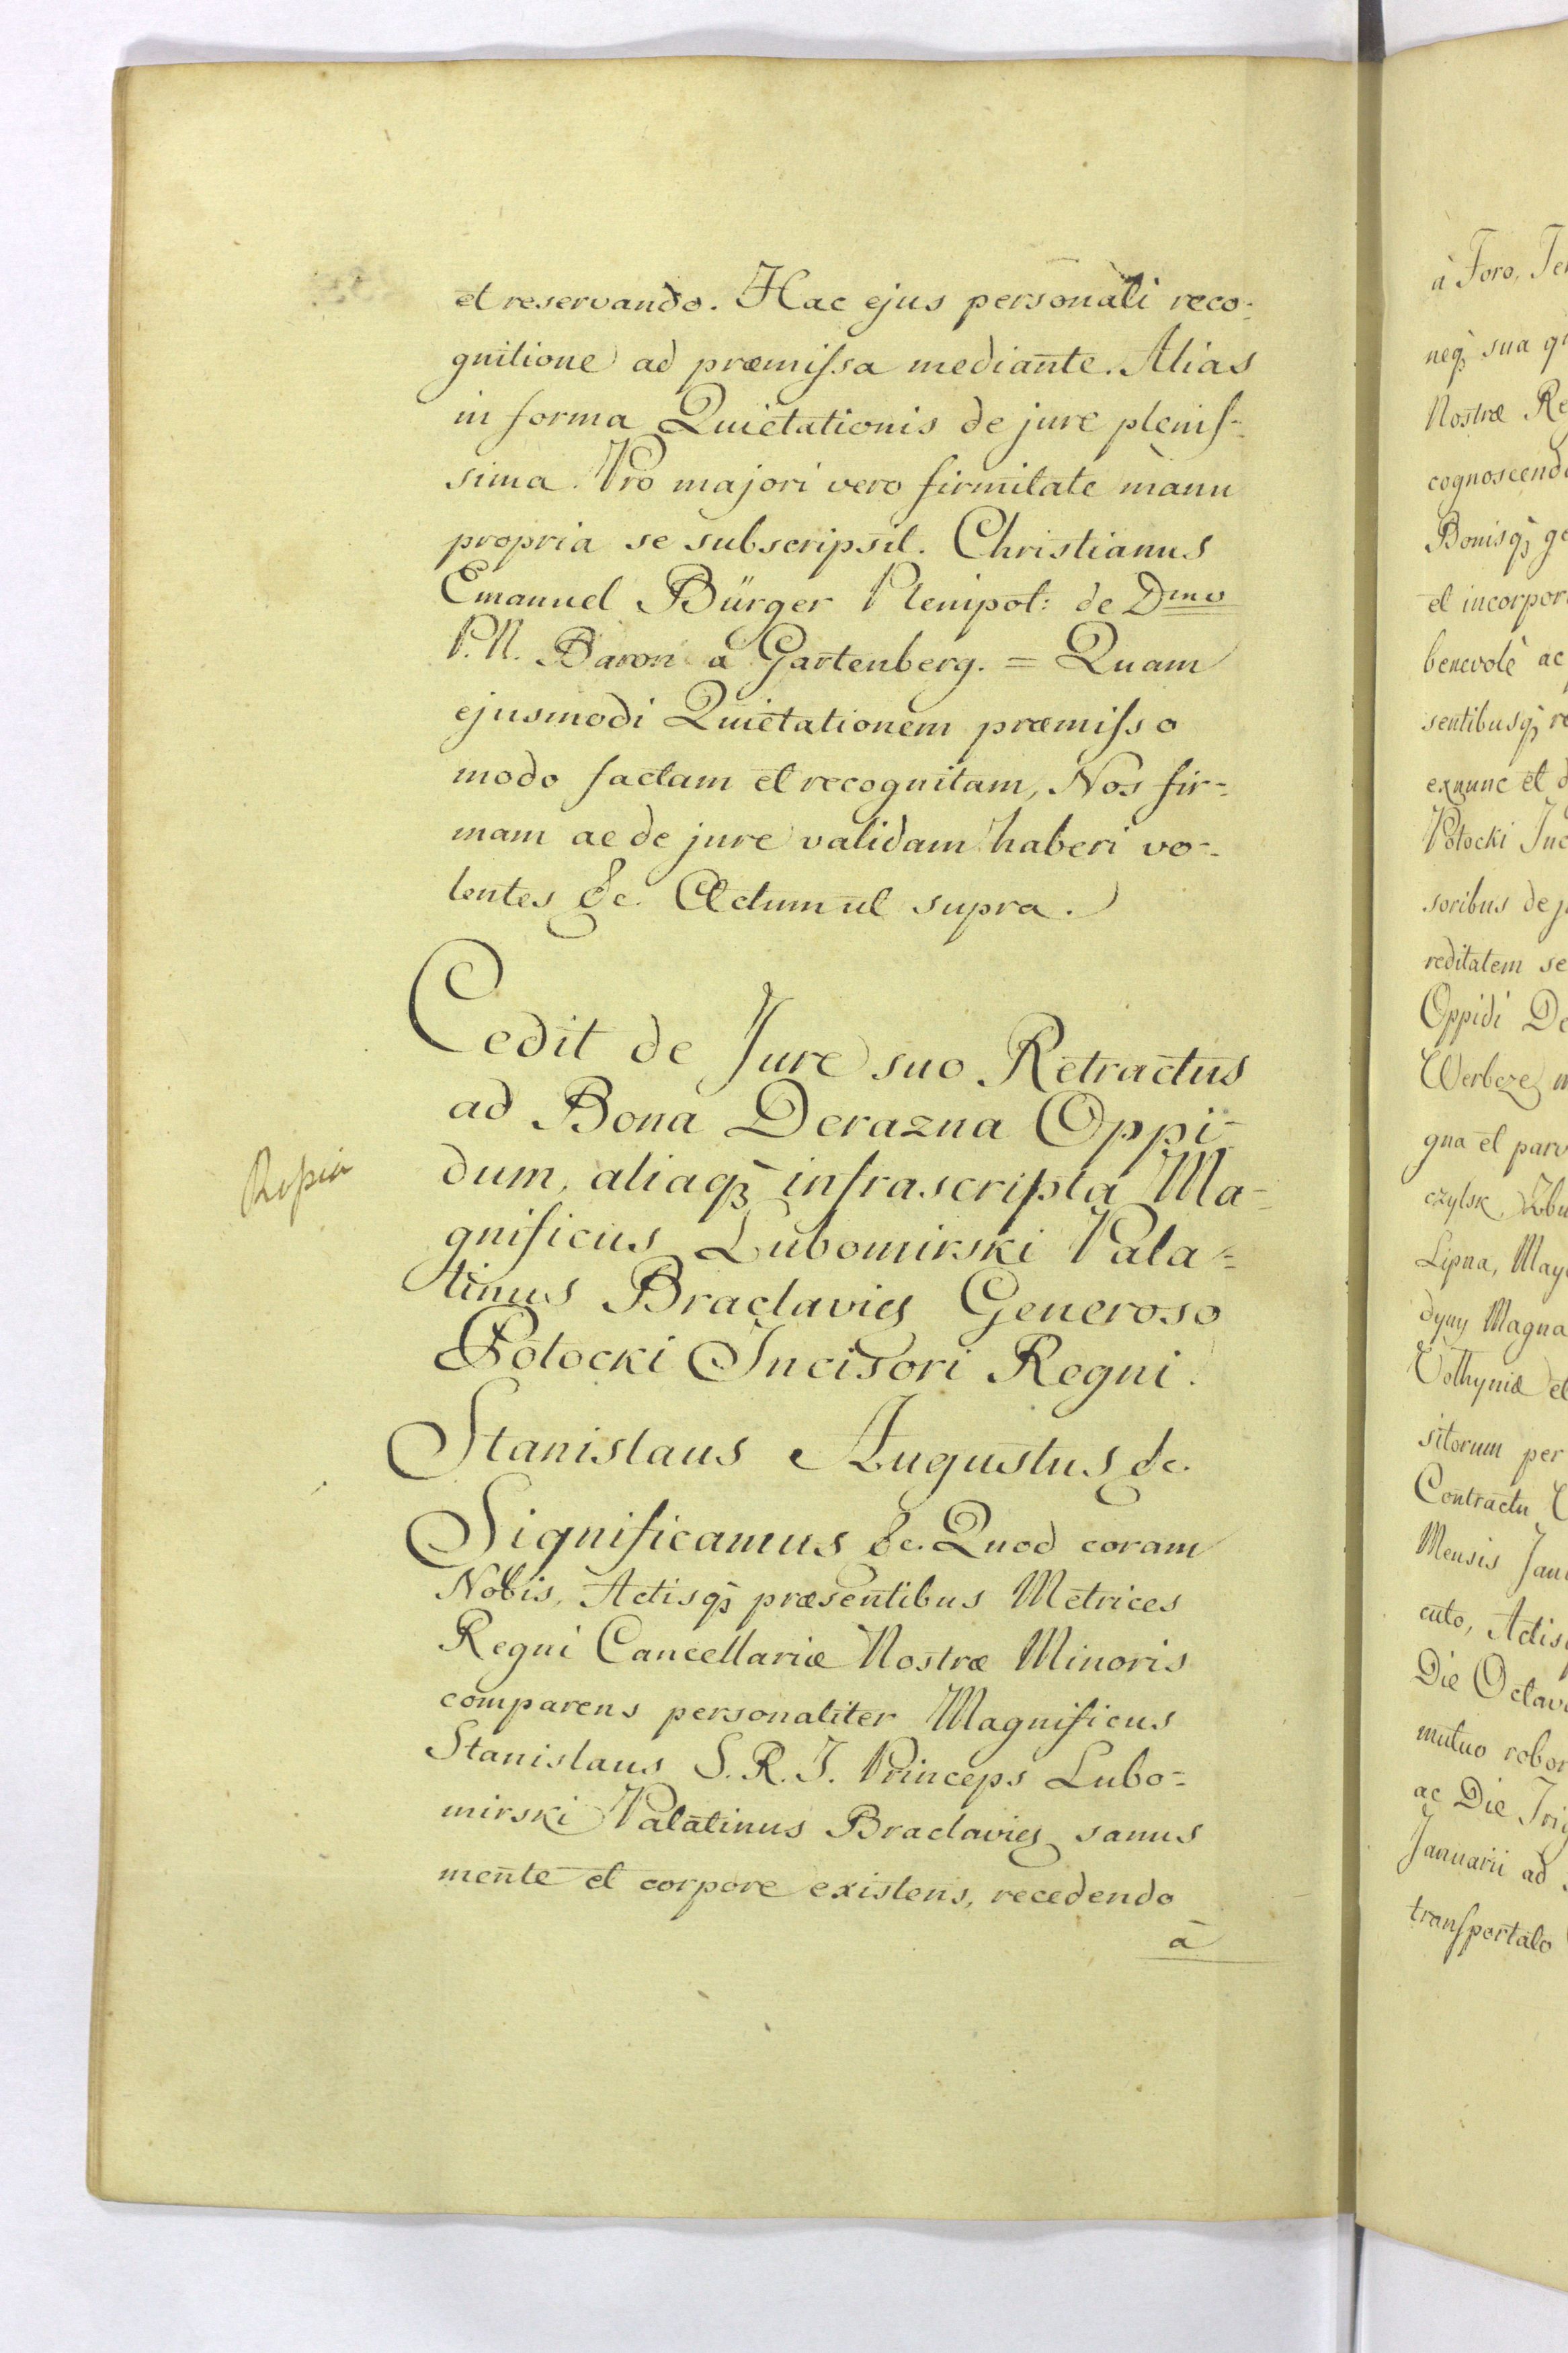 et reservando. Hac ejus personali reco-
gnitione ad præmissa mediante. Alias
in forma Quietationis de jure plenis-
sima. Pro majori vero firmitate manu
propria se subscripsit. Christianus
Emanuel Bürger Plenipot: de Dmo
P. N. Baron a Gartenberg. = Quam
ejusmodi Quietationem præmisso
modo factam et recognitam, Nos fir-
mam ac de jure validam haberi vo-
lentes &c. Actum ut supra.
Cedit de Jure suo Retractus
ad Bona Derazna Oppi-
dum, aliaqȝ infrascripta Ma-
gnificus Lubomirski Pala-
tinus Braclavięs Generoso
Potocki Incisori Regni.
Stanislaus Augustus &c.
Significamus &c. Quod coram
Nobis, Actisqȝ præsentibus Metrices
Regni Cancellariæ Nostræ Minoris
comparens personaliter Magnificus
Stanislaus S. R. I. Princeps Lubo-
mirski Palatinus Braclavięs sanus
mente et corpore existens, recedendo
à
à Foro, Te
neqȝ sua q
Nostræ Re
cognoscend
Bonisqȝ ge
et incorpor
benevolè ac
sentibusqȝ re
exnunc et d
Potocki Inc
soribus de j
reditatem se
Oppidi De
Werbcze m
gna et parv
czylsk, Zbu
Lipna, May
dyny Magna
Volhyniæ et
sitorum per
Contractu
Mensis Jan
cuto, Actis
Die Octav
mutuo robor
ac Die Tri
Januarii ad
transportato